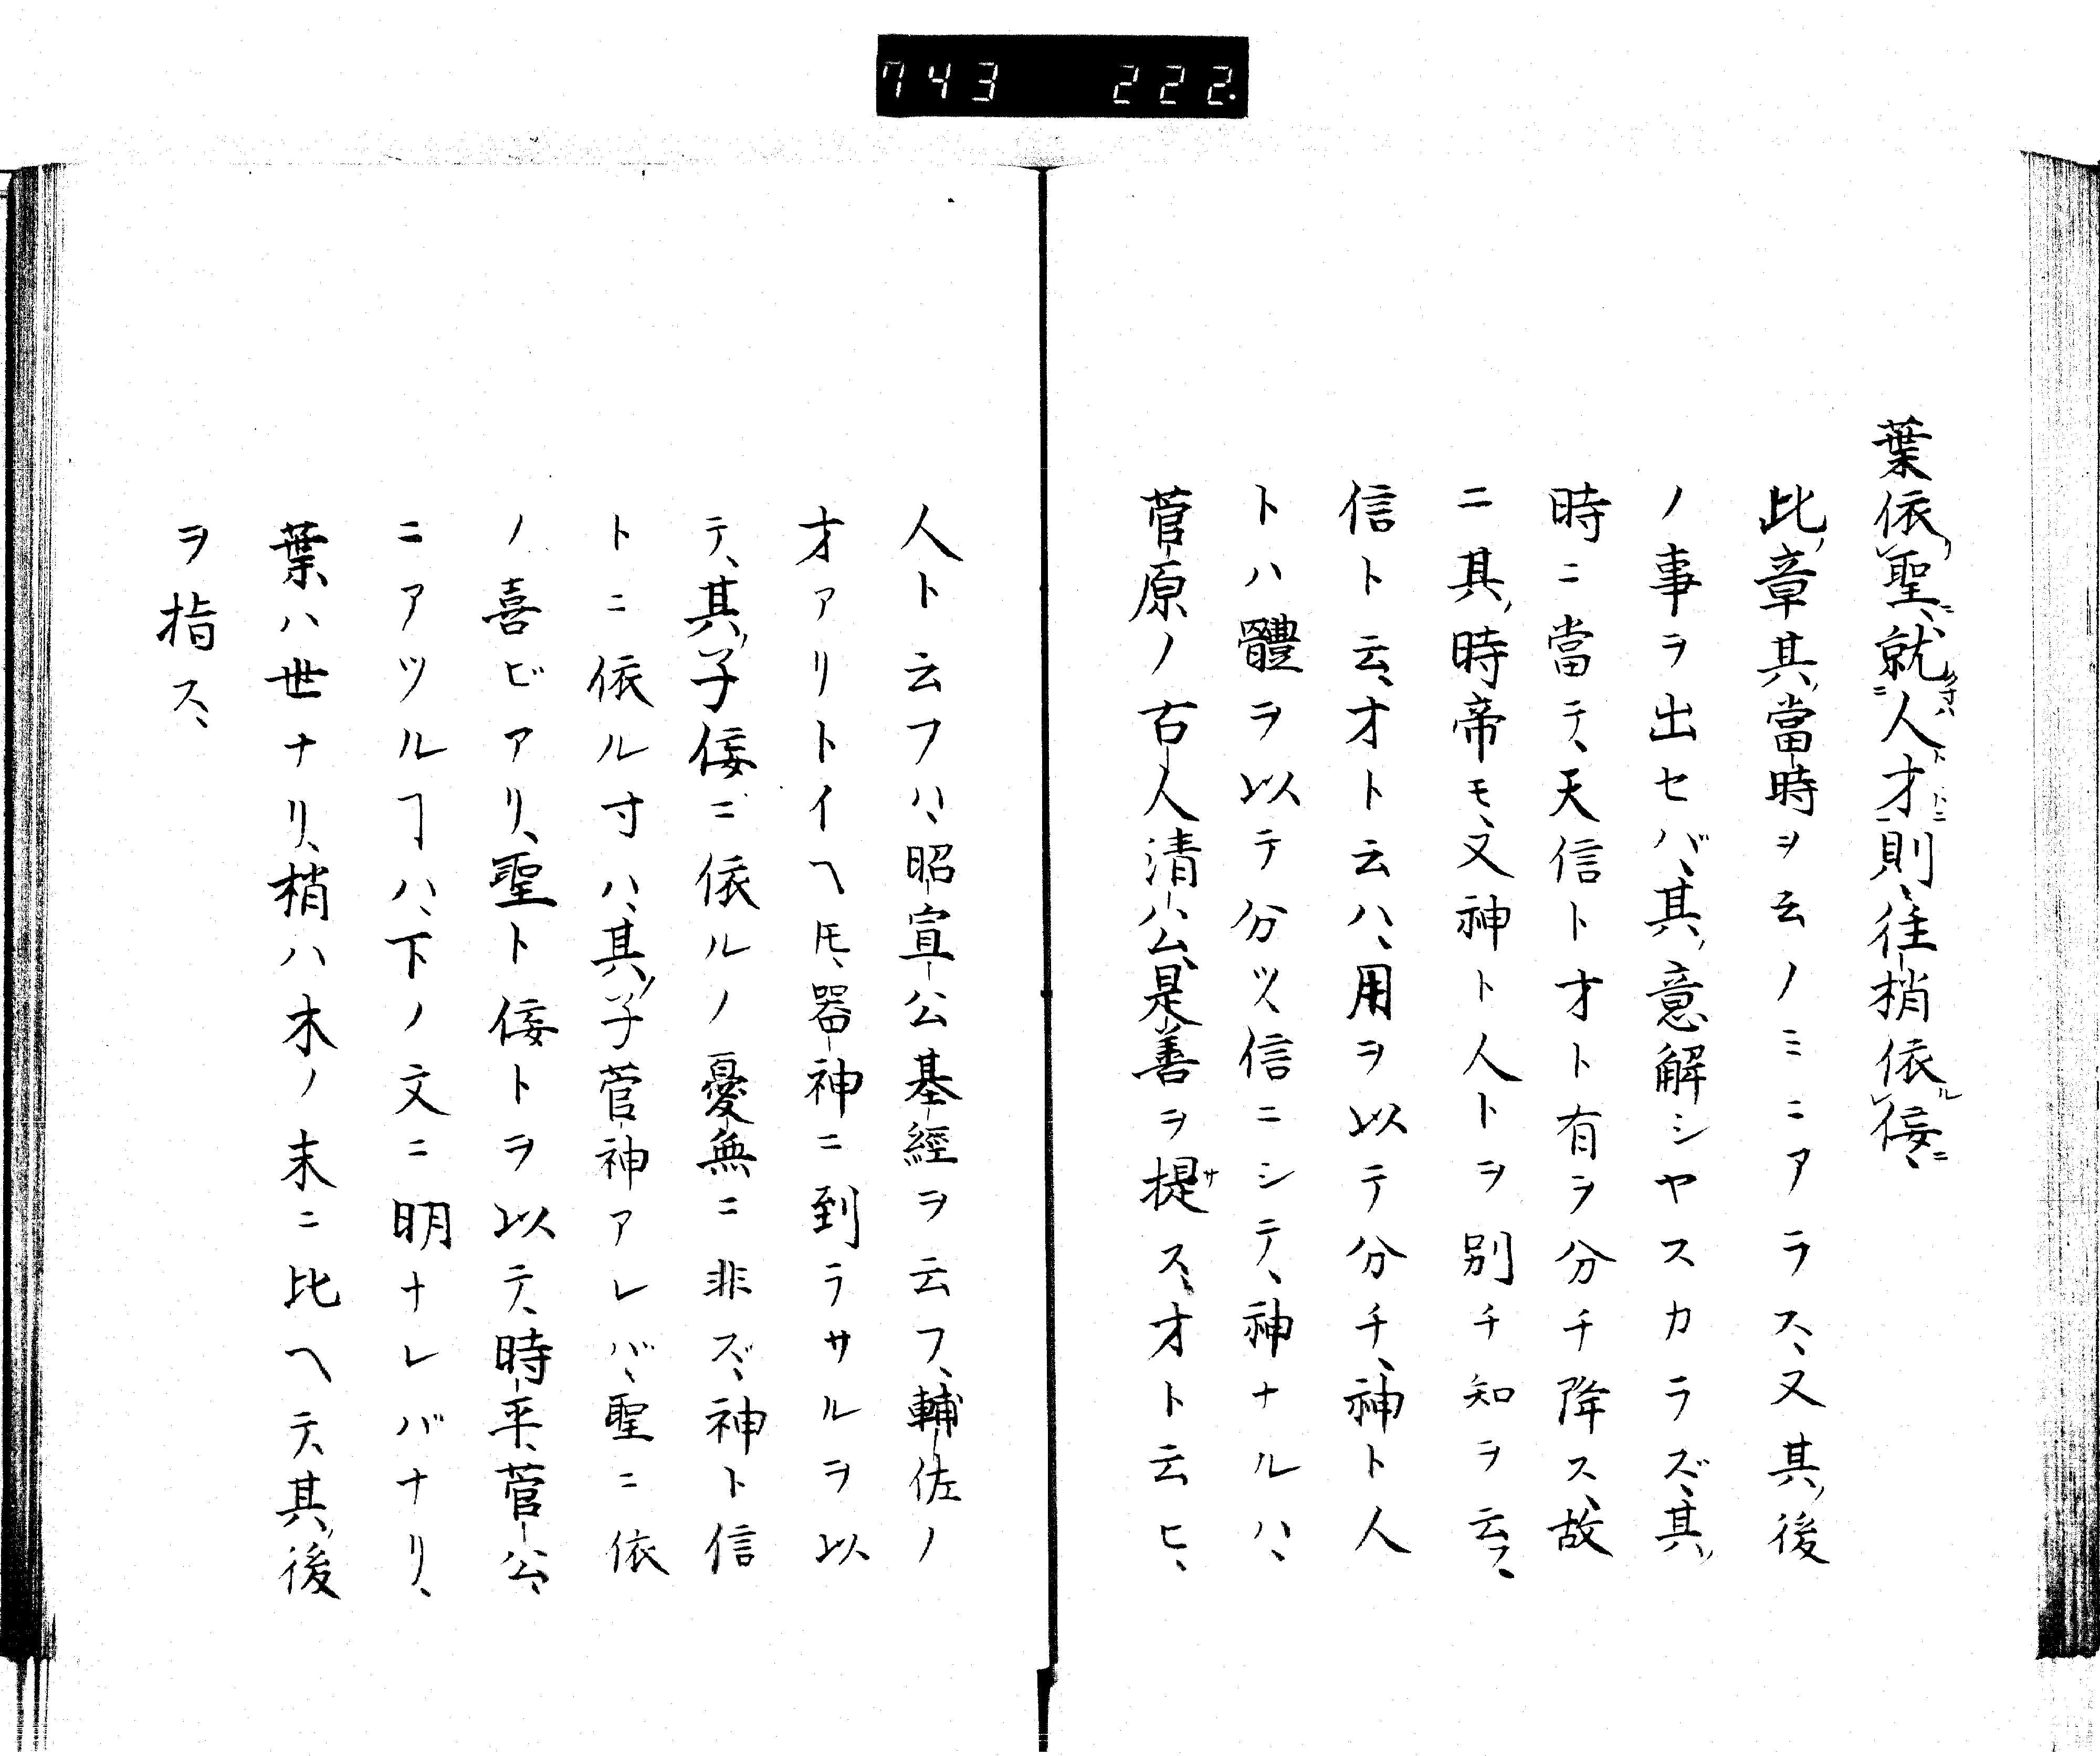 743 222.
葉依聖、就人才則、往梢依佞、
此ノ章其ノ當時ヲ云ノミニアラス、又其ノ後
ノ事ヲ出セバ、其ノ意解シヤスカラズ、其ノ
時ニ當テ、天信トオト有ヲ分チ降ス、故
ニ其ノ時帝モ、又神ト人トヲ別チ知ヲ云フ、
信ト云、才ト云ハ、用ヲ以テ分チ、神ト人
トハ體ヲ以テ分ツ、信ニシテ、神ナルハ、
菅原ノ古人清公、是善ヲ提ス、才ト云ヒ、
人ト云フハ、昭宣公基經ヲ云フ、輔佐ノ
才アリトイヘ𪜈、器神ニ到ラサルヲ以
テ、其ノ子佞ニ依ルノ憂無ニ非ズ、神ト信
トニ依ル寸ハ、其ノ子菅神アレバ、聖ニ依
ノ喜ビアリ、聖ト佞トヲ以テ、時平、菅公、
ニアツルヿハ、下ノ文ニ明ナレバナリ、
葉ハ世ナリ、梢ハ木ノ末ニ比ヘテ、其ノ後
ヲ指ス、